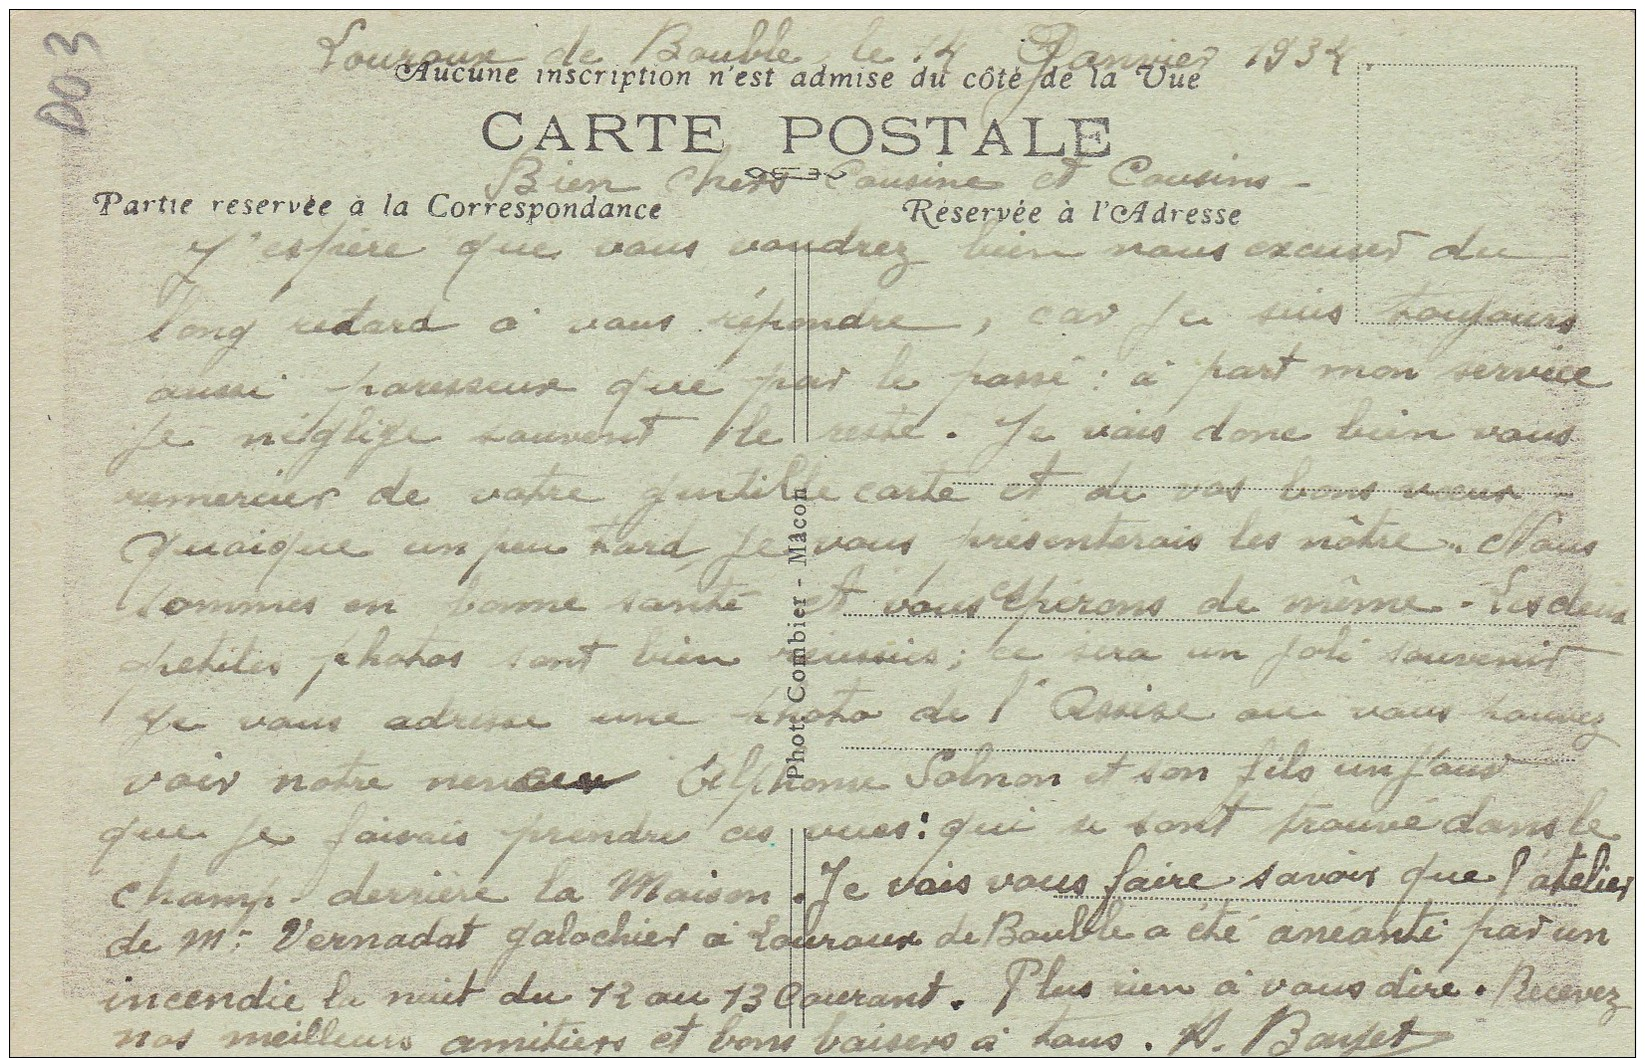 D03
Louroux de Bouble, le 14 Janvier 1934.
Aucune inscription n'est admise du côté de la Vue
CARTE POSTALE
Bien chers Cousine et Cousins -
Partie reservée à la Correspondance
Réservée à l'Adresse
J'espère que vous voudrez bien nous excuser du
long retard à vous répondre, car je suis toujours
aussi paresseux que par le passé : à part mon service
je néglige souvent le reste. Je vais donc bien vous
remercier de votre gentille carte et de vos bons voeux -
Quoique un peu tard, je vous présenterais les nôtre. Nous
sommes en bonne santé et vous espérons de même - Les deux
petites photos sont bien réussies ; ce sera un joli souvenir
Je vous adresse une photo de l'Assise ou vous pouvez
voir notre neveu Alphonse Solnon et son fils un jour
que je faisais prendre ces vues : qui se sont trouvé dans le
champ derrière la Maison. Je vais vous faire savoir que l'atelier
de Mr Vernadat galochier à Louroux de Bouble a été anéanti par un
incendie la nuit du 12 au 13 Courant. Plus rien à vous dire. Recevez
nos meilleurs amitiers et bons baisers à tous.
Phot. Combier - Mâcon